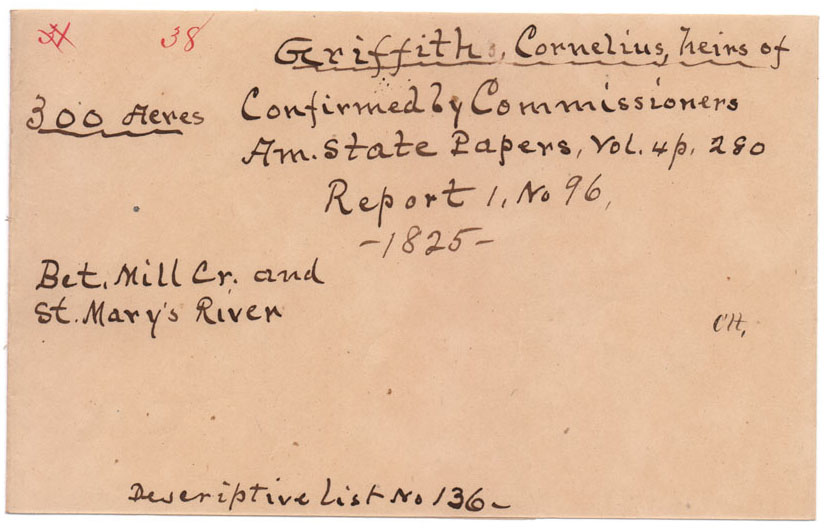 38
Griffith, Cornelius, heirs of
300 Acres
Confirmed by Commissioners
Am. State Papers, Vol. 4 p. 280
Report 1, No 96,
-1825-
Bet. Mill Cr. and
St. Mary's River
Descriptive List No 136-